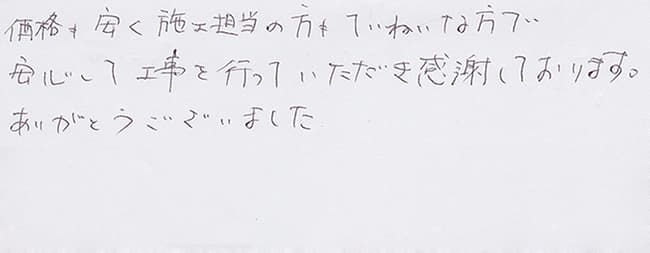 価格も安く施工担当の方もていねいな方で
安心して工事を行っていただき感謝しております。
ありがとうございました